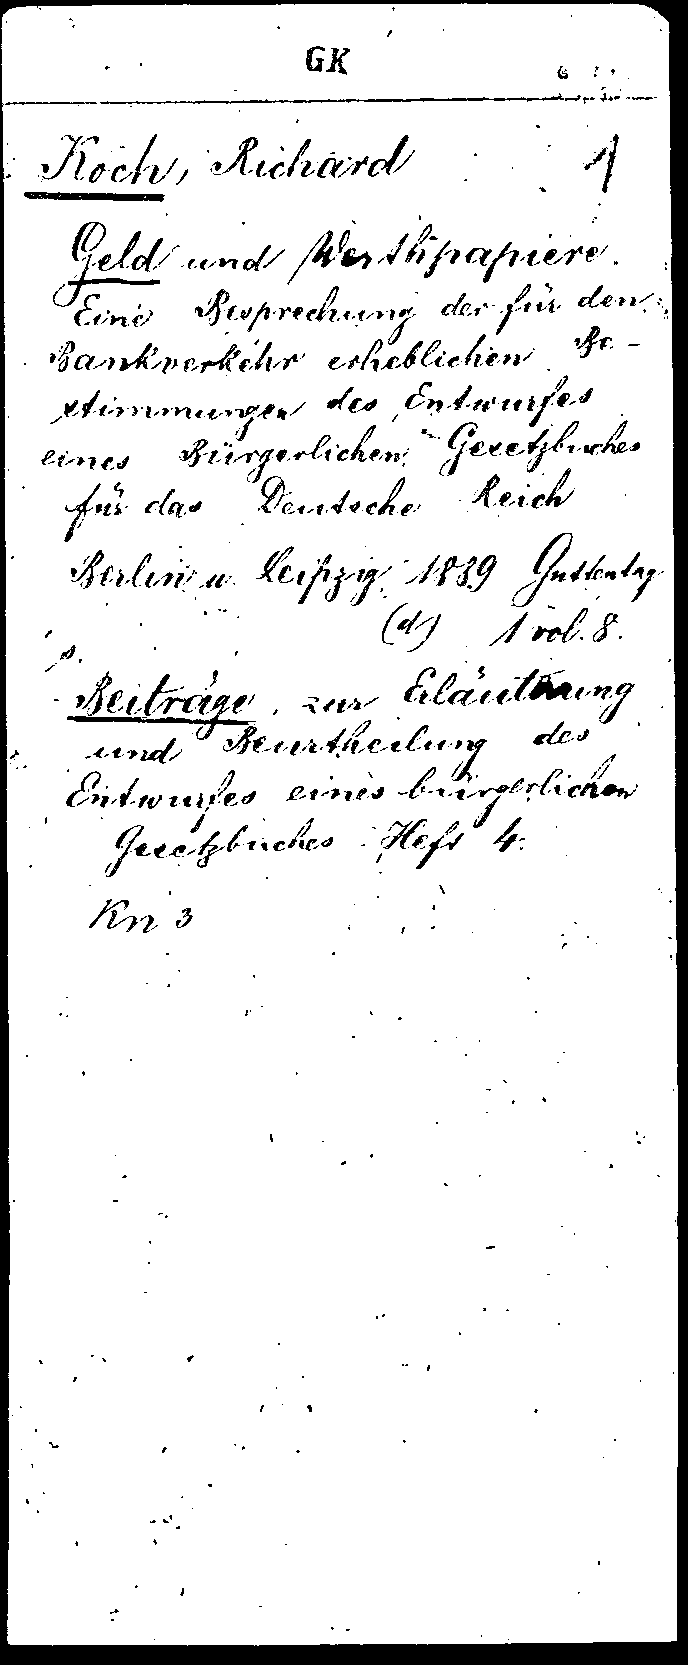 GK
Koch, Richard 1
Geld und Werthpapiere.
Eine Besprechung der für den
Bankverkehr erheblichen Be-
stimmungen des Entwurfes
eines Bürgerlichen Gesetzbuches
für das Deutsche Reich
Berlin u. Leipzig 1889 Guttentag
(d) 1 vol. 8.
s.
Beiträge zur Erläuterung
und Beurtheilung des
Entwurfes eines bürgerlichen
Gesetzbuches Heft 4.
Kn 3